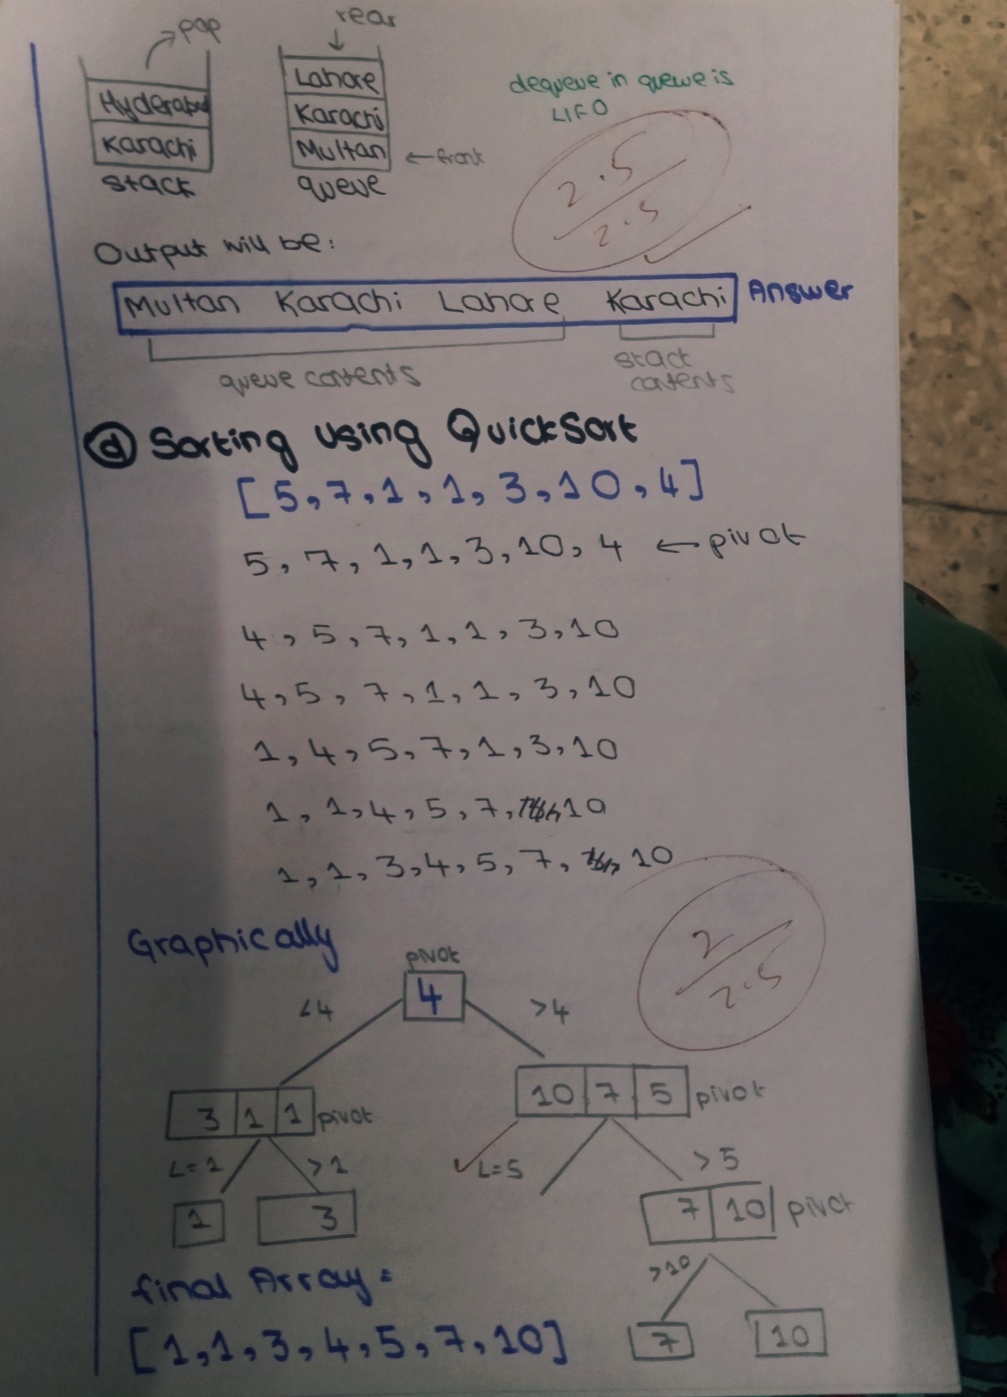 pop
rear
Hyderabad
Karachi
stack
Lahore
Karachi
Multan
←front
queue
dequeue in queue is
LIFO
2.5
2.5
Output will be:
Multan Karachi Lahore Karachi Answer
queue contents
stact
contents
d Sorting using QuickSort
[5,7,1,1,3,10,4]
5,7,1,1,3,10,4 ←pivot
4,5,7,1,1,3,10
4,5,7,1,1,3,10
1,4,5,7,1,3,10
1,1,4,5,7,10
1,1,3,4,5,7,10
2
2.5
Graphically
pivot
4
<4
>4
3 1 1 pivot
10 7 5 pivot
L=1
>1
L=5
>5
1
3
7 10 pivot
>10
7
10
final Array=
[1,1,3,4,5,7,10]